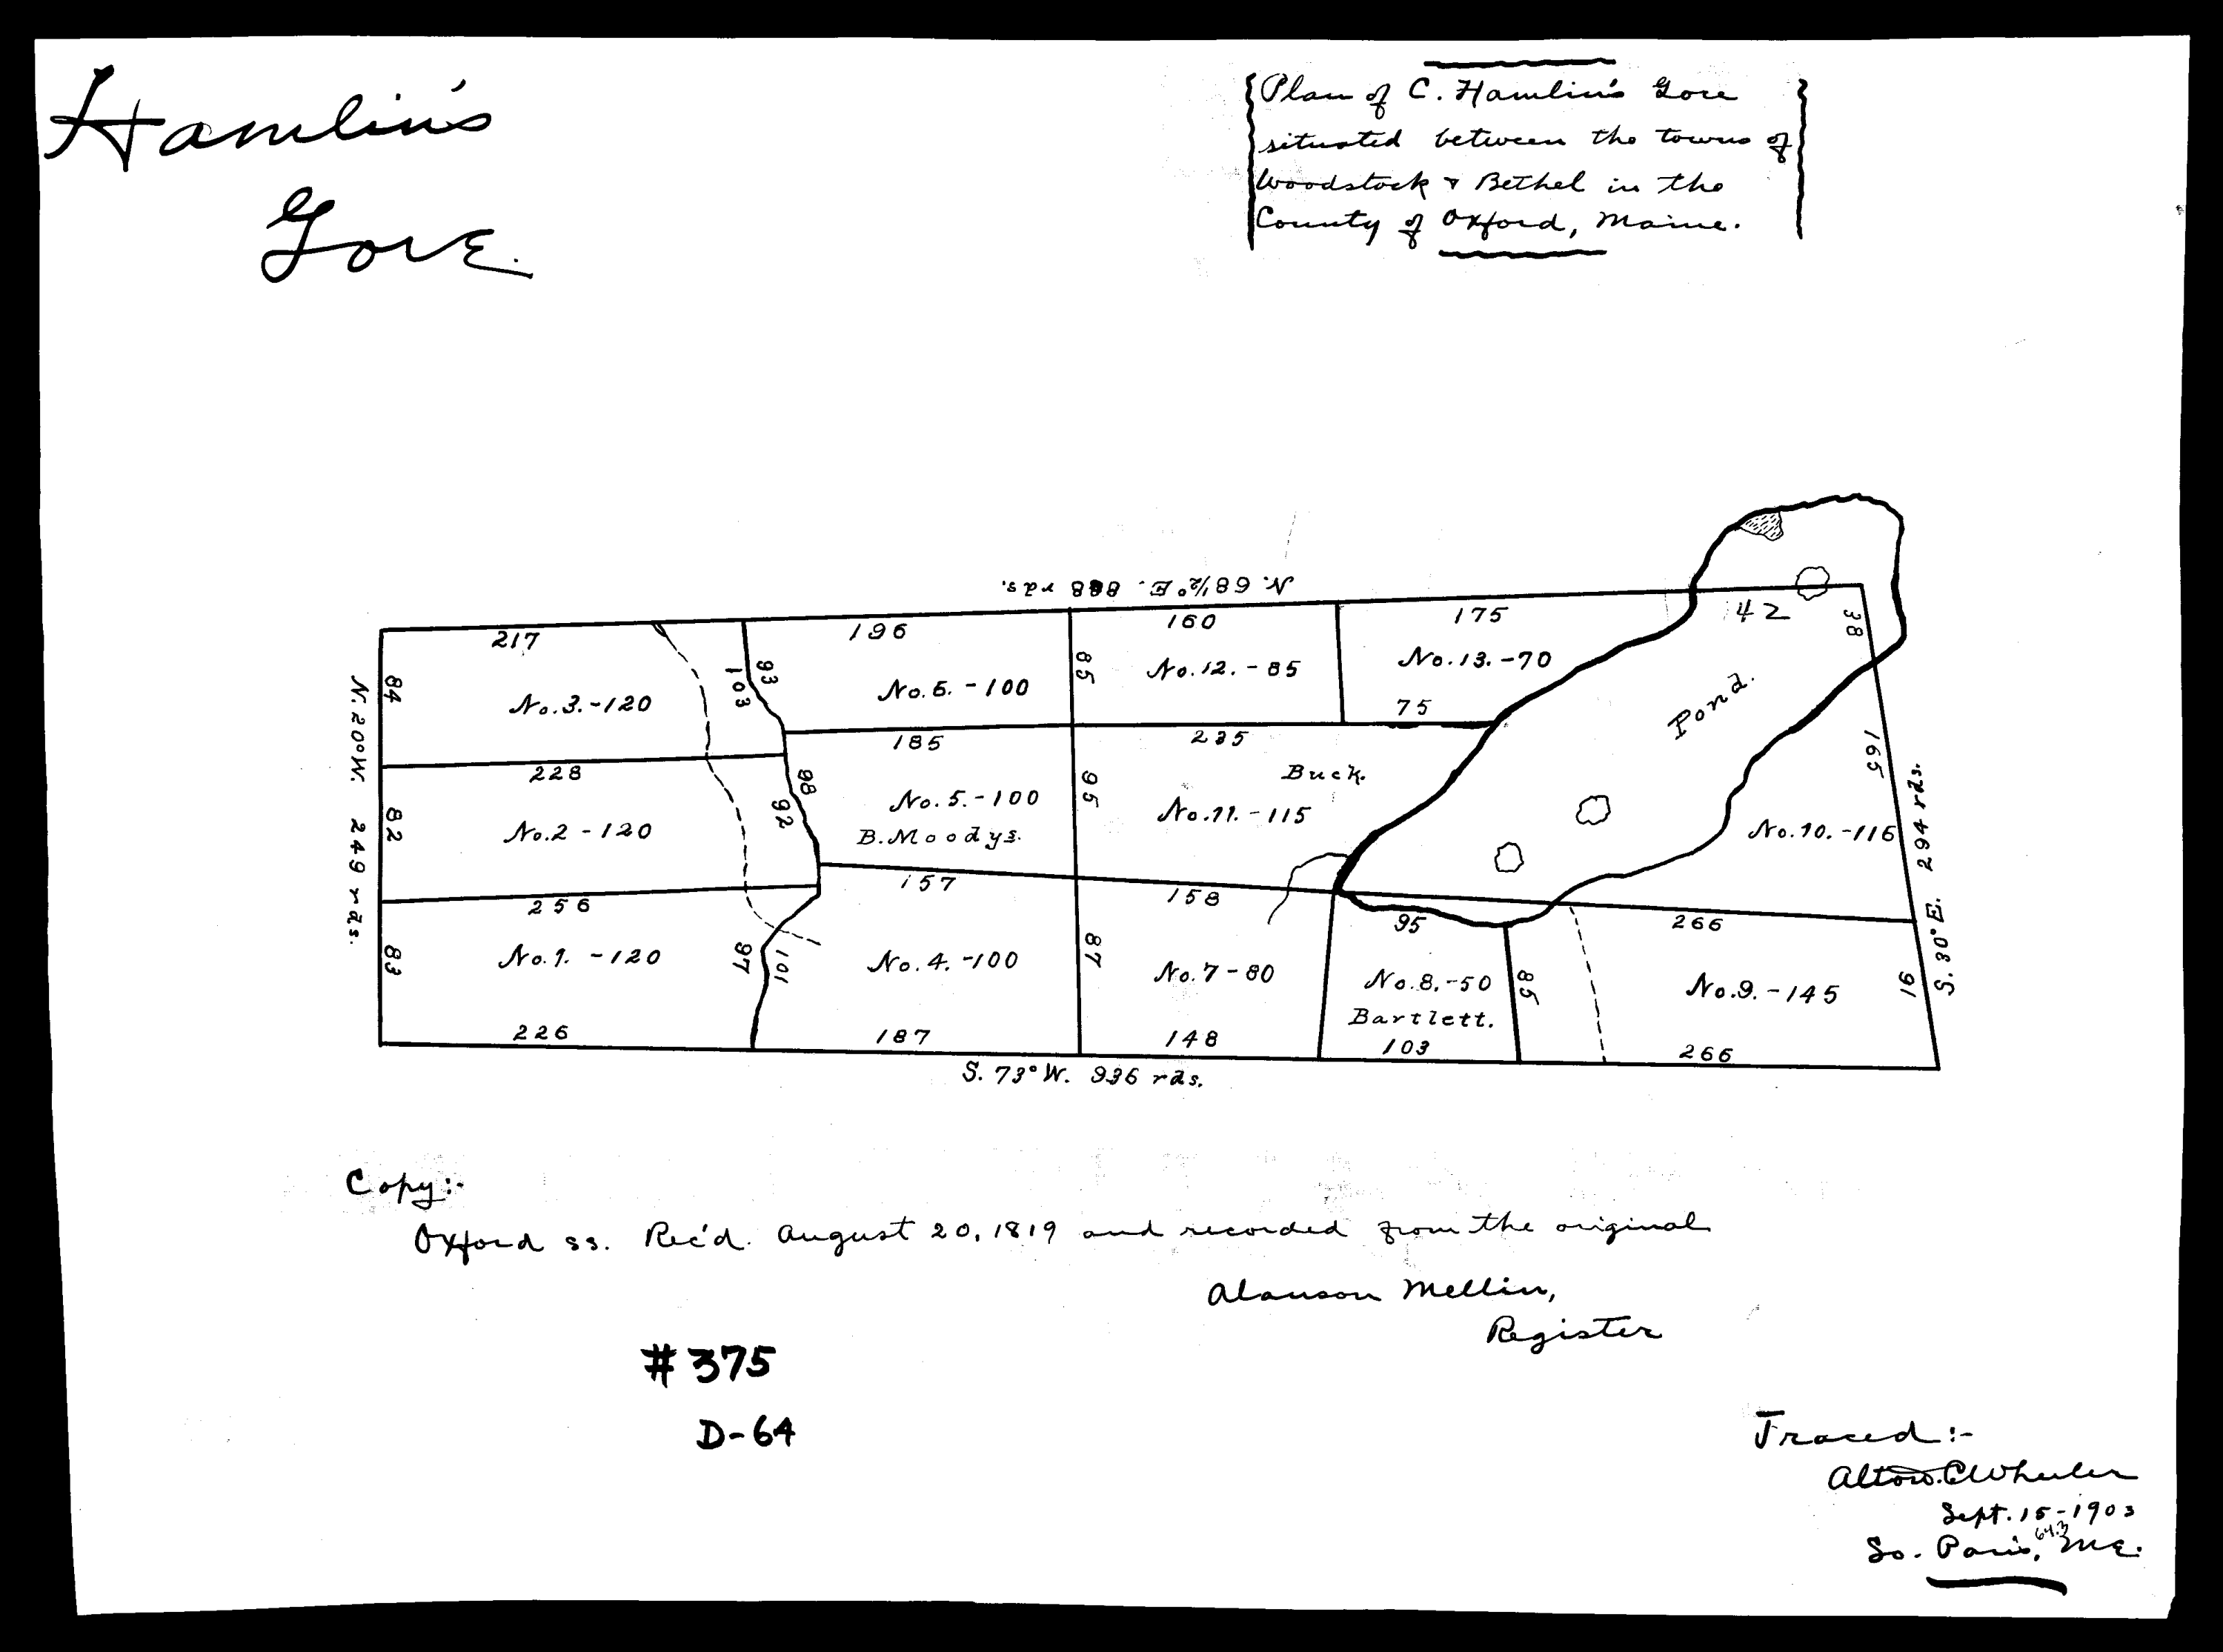 Hamlin's
Gore.
Plan of C. Hamlin's Gore
situated between the towns of
Woodstock & Bethel in the
County of Oxford, Maine.
N. 68½° E. 888 rds.
217
196
160
175
42
38
84
93
103
85
No. 3. - 120
No. 6. - 100
No. 12. - 85
No. 13. - 70
75
Pond.
N. 20° W. 249 rds.
228
185
235
165
82
98
92
95
Buck.
No. 2 - 120
No. 5. - 100
B. Moodys.
No. 11. - 115
No. 10. - 116
S. 8° E. 294 rds.
256
157
158
95
266
83
97
101
87
85
91
No. 1. - 120
No. 4. - 100
No. 7 - 80
No. 8. - 50
Bartlett.
No. 9. - 145
226
187
148
103
266
S. 73° W. 936 rds.
Copy:-
Oxford ss. Rec'd. August 20, 1819 and recorded from the original
Alanson Mellin,
Register
# 375
D-64
Traced:-
Alton C Wheeler
Sept. 15 - 1903
64.3
So. Paris, ME.